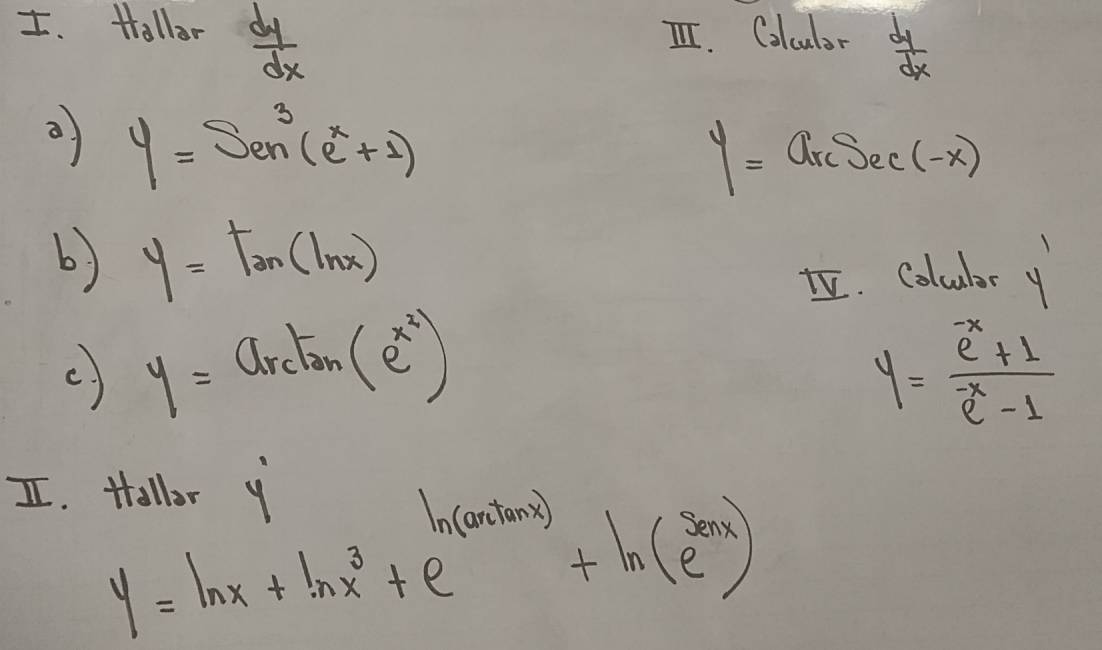 I. Hallar dy/dx
a) y = Sen³(eˣ+1)
b) y = tan(lnx)
c) y = arctan(e^(x²))
II. Hallar y'
y = lnx + lnx³ + e^(ln(arctanx)) + ln(e^(Senx))
III. Calcular dy/dx
y = arcSec(-x)
IV. Calcular y'
y = (e^(-x) + 1)/(e^(-x) - 1)